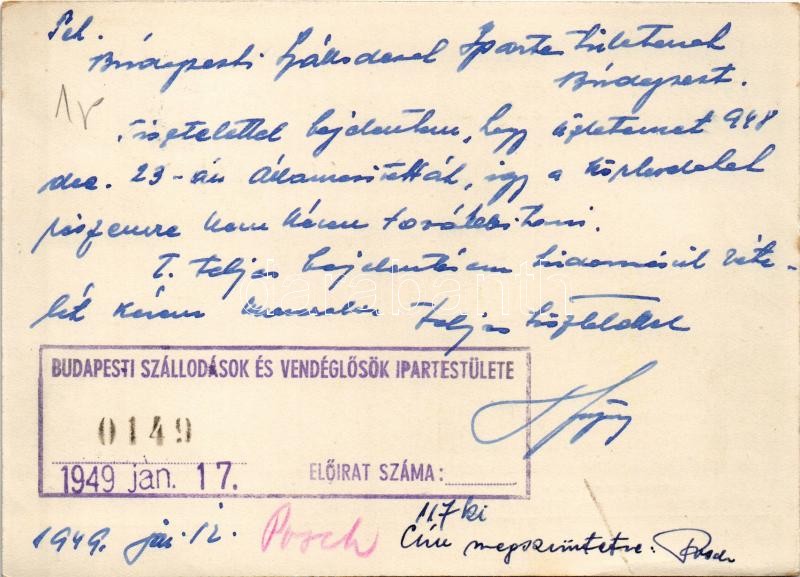 Budapesti Szállodások Ipartestületének
Budapest.
Tisztelettel bejelentem, hogy üzletemet 948
dec. 23-án államosították, így a
részemre nem kérem továbbítani.
T. bejelentésem tudomásul véte-
lét kérem maradok teljes tisztelettel
BUDAPESTI SZÁLLODÁSOK ÉS VENDÉGLŐSÖK IPARTESTÜLETE
0149
1949 jan. 17.
ELŐIRAT SZÁMA:
1949. jan. 12. Posch
117 ki
Cím megszüntetve. Posch
darabanth